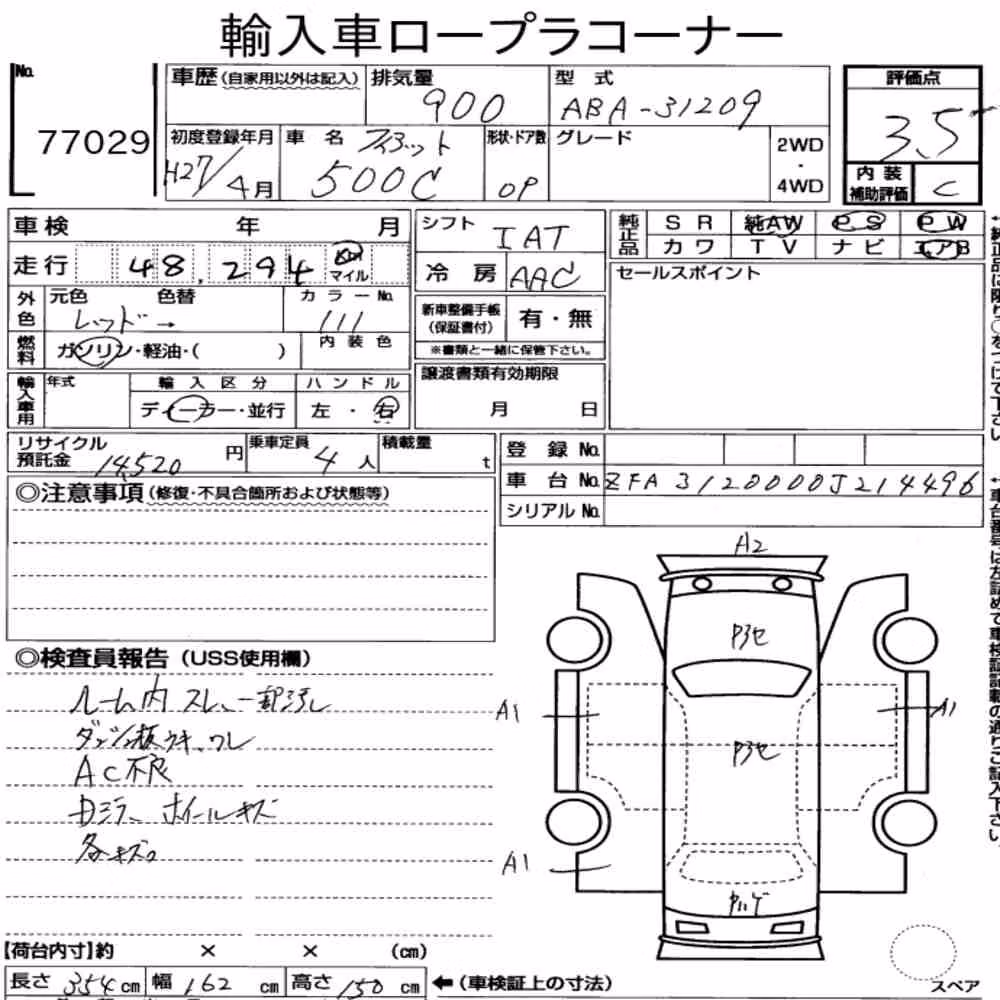 輸入車ロープラコーナー
No.
77029
車歴(自家用以外は記入)
排気量
900
型式
ABA-31209
評価点
3.5
初度登録年月
H27/4月
車名
フィアット
500C
形状・ドア数
OP
グレード
2WD
・
4WD
内装
補助評価
C
車検 年 月
走行 48,294 km マイル
シフト
IAT
冷房 AAC
純正品
SR 純AW PS PW
カワ TV ナビ エアB
セールスポイント
外色
元色 色替
レッド→
カラーNo.
111
新車整備手帳
(保証書付)
有・無
※書類と一緒に保管下さい。
燃料
ガソリン・軽油・( )
内装色
輸入車用
年式
輸入区分
ディーラー・並行
ハンドル
左・右
譲渡書類有効期限
月 日
リサイクル
預託金 14,520 円
乗車定員 4人
積載量 t
登録No.
車台No. ZFA3120000J214496
シリアルNo.
◎注意事項(修復・不具合箇所および状態等)
◎検査員報告(USS使用欄)
ルーム内スレ、一部汚れ
ダッシュ板ウキ、ワレ
AC不良
ホイールキズ
各キズ
A2
A1
A1
A1
【荷台内寸】約 × × (cm)
長さ 354cm 幅 162 cm 高さ 150 cm ←(車検証上の寸法)
スペア